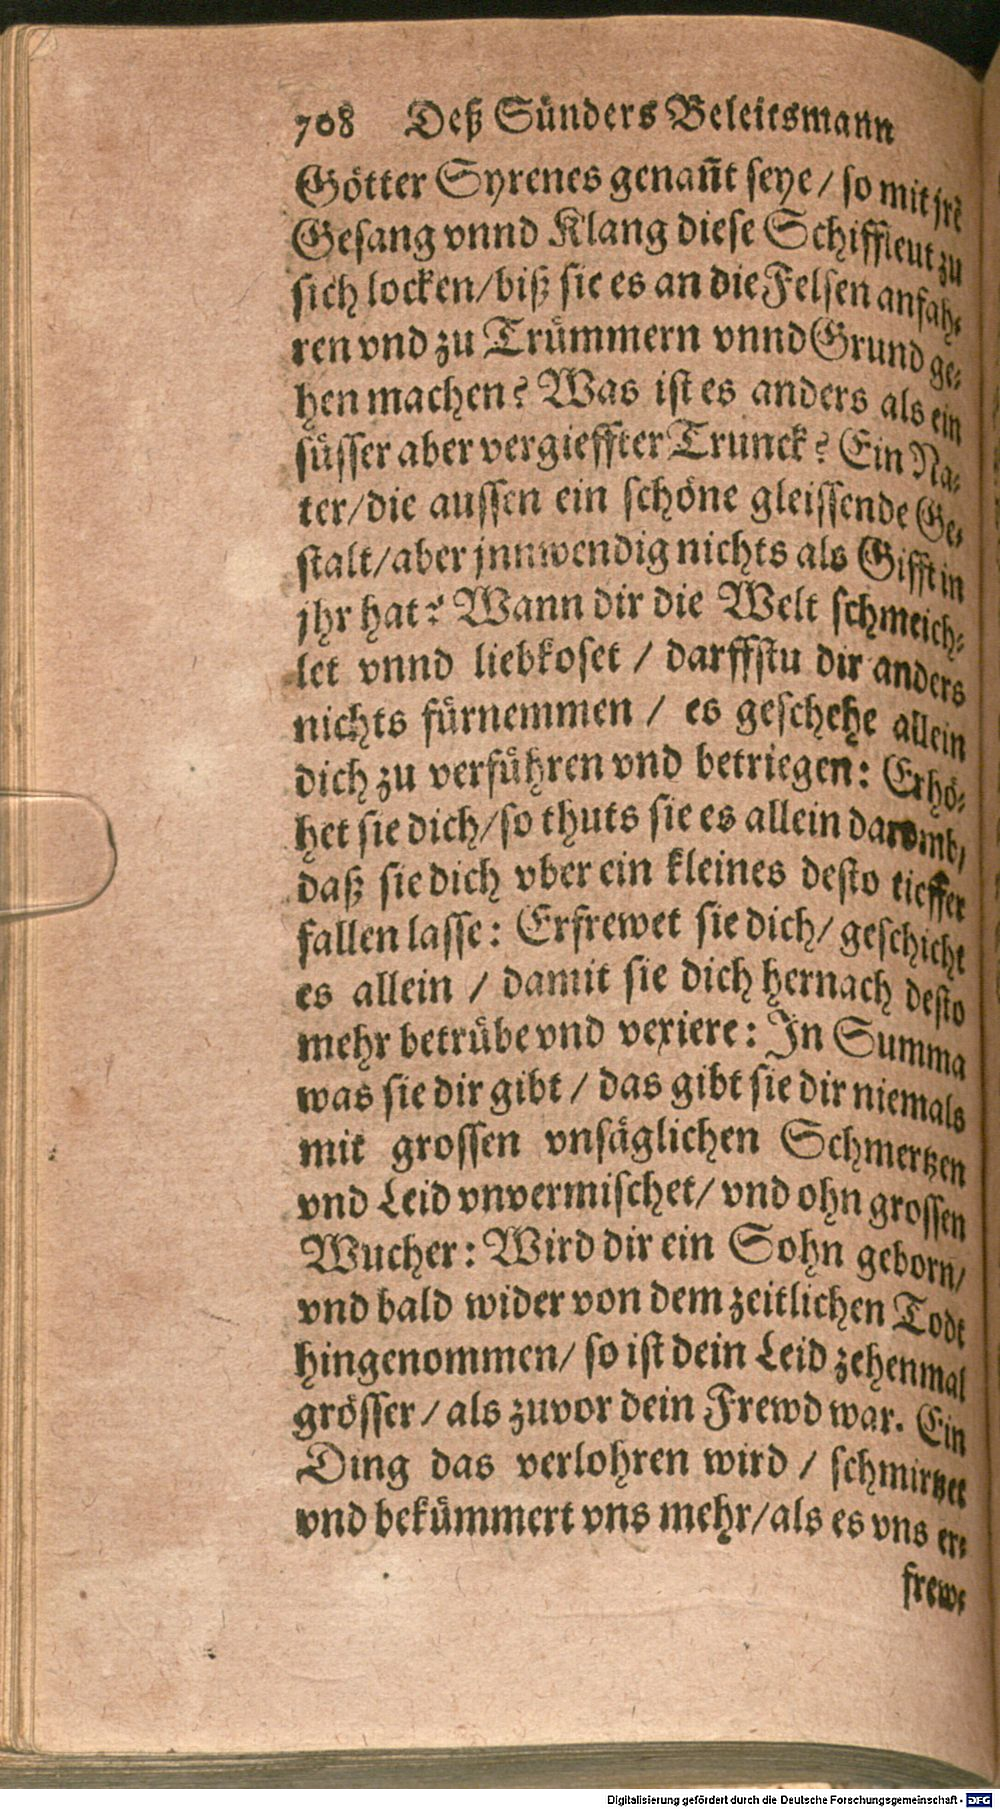 708 Deß Sünders Beleitsmann
Götter Syrenes genañt seye / so mit jrẽ
Gesang vnnd Klang diese Schiffleut zu
sich locken/biß sie es an die Felsen anfah-
ren vnd zu Trümmern vnnd Grund ge-
hen machen? Was ist es anders als ein
süsser aber vergieffter Trunck? Ein Na-
ter/die aussen ein schöne gleissende Ge-
stalt/aber jnnwendig nichts als Gifft in
jhr hat? Wann dir die Welt schmeich-
let vnnd liebkoset / darffstu dir anders
nichts fürnemmen / es geschehe allein
dich zu verführen vnd betriegen: Erhö-
het sie dich/so thuts sie es allein darvmb/
daß sie dich vber ein kleines desto tieffer
fallen lasse: Erfrewet sie dich/ geschicht
es allein / damit sie dich hernach desto
mehr betrübe vnd vexiere: In Summa
was sie dir gibt / das gibt sie dir niemals
mit grossen vnsäglichen Schmertzen
vnd Leid vnvermischet/ vnd ohn grossen
Wucher: Wird dir ein Sohn geborn/
vnd bald wider von dem zeitlichen Todt
hingenommen/ so ist dein Leid zehenmal
grösser/ als zuvor dein Frewd war. Ein
Ding das verlohren wird / schmirtzet
vnd bekümmert vns mehr/als es vns er-
frew-
Digitalisierung gefördert durch die Deutsche Forschungsgemeinschaft - DFG